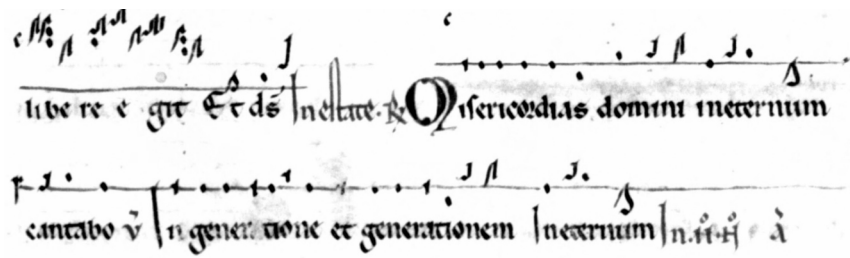 libe re e git Et ds̄ In estate. ℟ Misericordias domini ineternum
cantabo v̄ In generatione et generationem Ineternum In